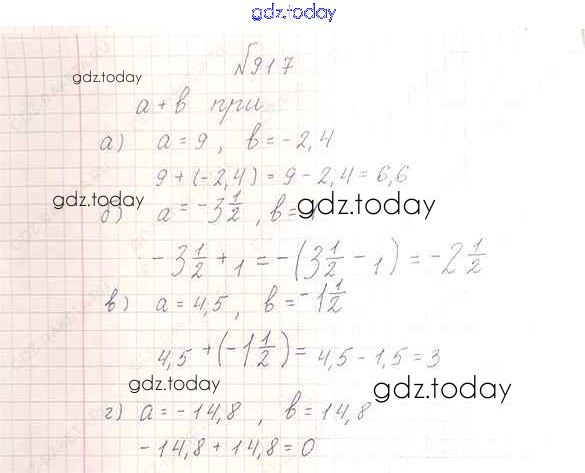 gdz.today
№917
gdz.today
a + b при
а) a = 9, b = -2,4
9 + (-2,4) = 9 - 2,4 = 6,6
gdz.today
б) a = -3 1/2, b =
gdz.today
-3 1/2 + 1 = -(3 1/2 - 1) = -2 1/2
в) a = 4,5, b = -1 1/2
4,5 + (-1 1/2) = 4,5 - 1,5 = 3
gdz.today
gdz.today
г) a = -14,8, b = 14,8
-14,8 + 14,8 = 0